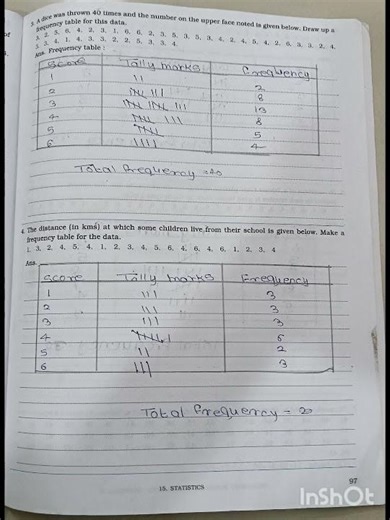 3. A dice was thrown 40 times and the number on the upper face noted is given below. Draw up a
frequency table for this data.
3, 2, 5, 6, 4, 2, 3, 1, 6, 6, 2, 3, 5, 3, 5, 3, 4, 2, 4, 5, 4, 2, 6, 3, 3, 2, 4,
5, 3, 4, 1, 4, 3, 3, 2, 2, 5, 3, 3, 4.
Ans. Frequency table :
Score Tally marks Frequency
1 || 2
2 |||| ||| 8
3 |||| |||| ||| 13
4 |||| ||| 8
5 |||| 5
6 |||| 4
Total frequency = 40
4. The distance (in kms) at which some children live from their school is given below. Make a
frequency table for the data.
1, 3, 2, 4, 5, 4, 1, 2, 3, 4, 5, 6, 4, 6, 4, 6, 1, 2, 3, 4
Ans.
Score Tally marks Frequency
1 ||| 3
2 ||| 3
3 ||| 3
4 |||| | 6
5 || 2
6 ||| 3
Total frequency = 20
15. STATISTICS
97
InShOt